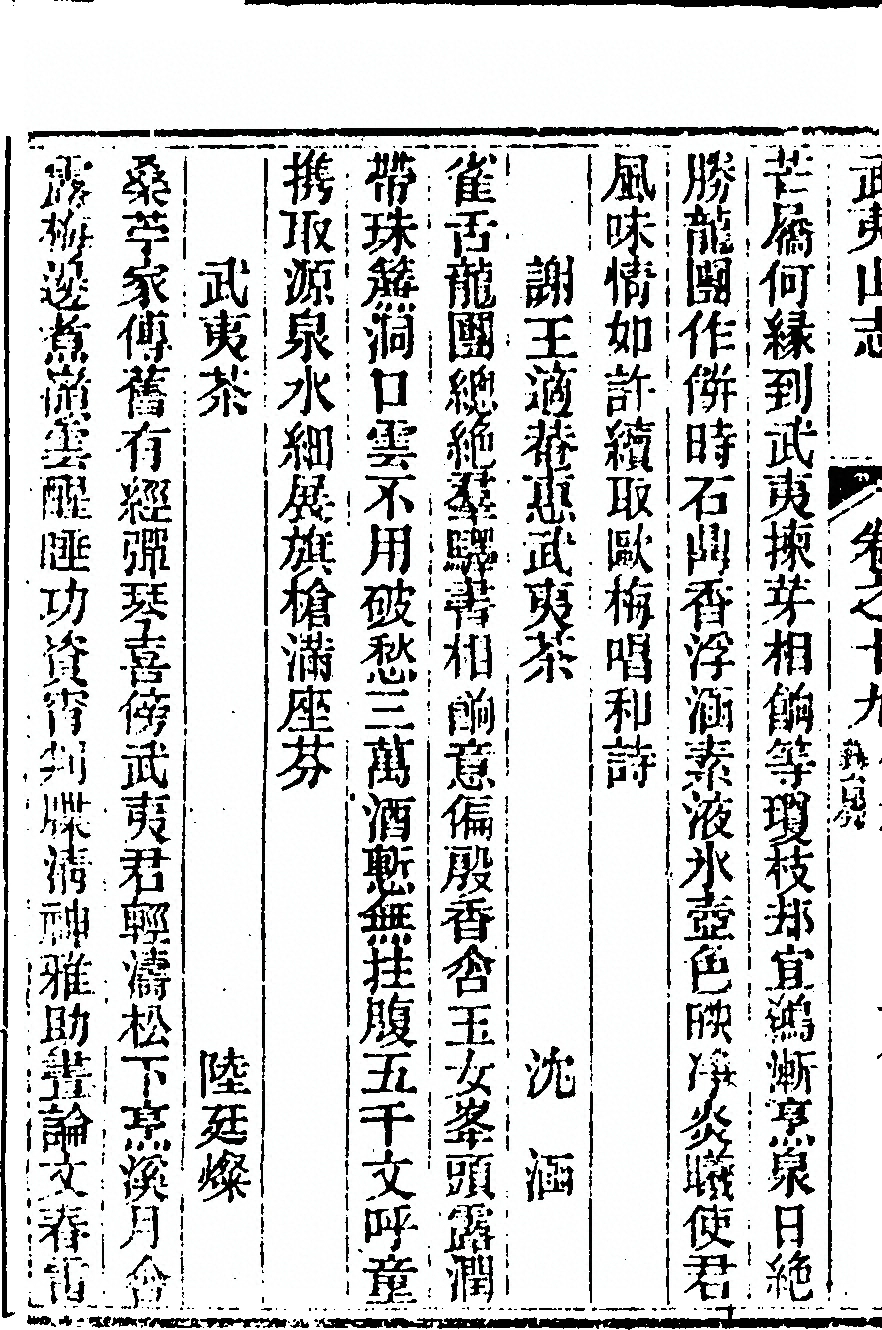 武夷山志 卷之十九 藝
芒屩何緣到武夷揀芽相餉等瓊枝却宜鶴漸烹泉日絶
勝龍團作餅時石鼎香浮涵素液氷壺色映凈炎曦使君
風味情如許續取歐梅唱和詩
謝王適菴惠武夷茶 沈涵
雀舌龍團總絶羣驛書相餉意偏殷香含玉女峯頭露潤
帶珠簾洞口雲不用破愁三萬酒慙無拄腹五千文呼童
携取源泉水細展旗槍滿座芬
武夷茶 陸廷燦
桑苧家傳舊有經彈琴喜傍武夷君輕濤松下烹溪月含
露梅邊煮嶺雲醒睡功資宵判牒清神雅助晝論文春雷